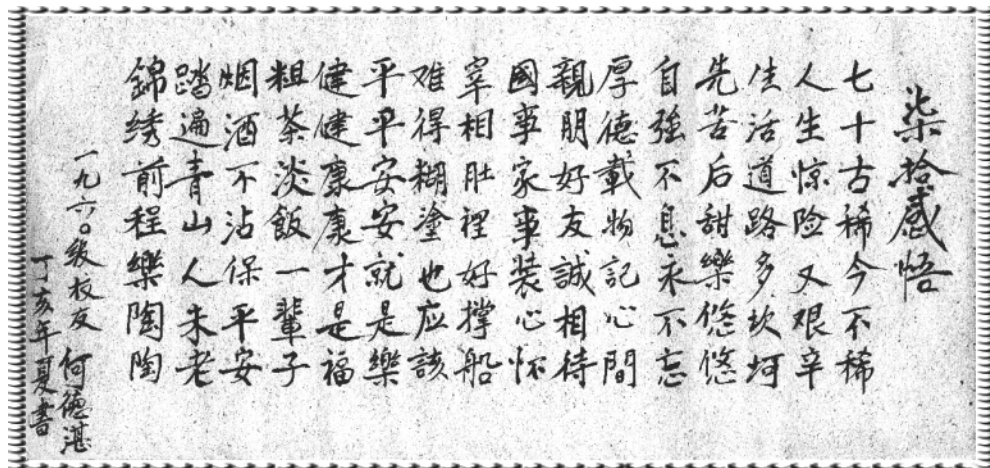 柒拾感悟
七十古稀今不稀
人生惊险又艰辛
生活道路多坎坷
先苦后甜樂悠悠
自强不息永不忘
厚德載物記心間
親朋好友誠相待
國事家事装心怀
宰相肚裡好撑船
难得糊塗也应該
平平安安就是樂
健健康康才是福
粗茶淡飯一輩子
烟酒不沾保平安
踏遍青山人未老
錦绣前程樂陶陶
一九六〇级校友 何德湛
丁亥年夏書